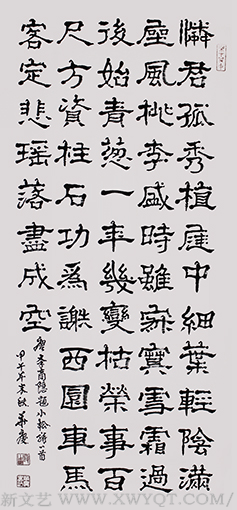 憐君孤秀植庭中細葉輕陰滿
座風桃李盛時雖寂寞雪霜過
後始青葱一年幾變枯榮事百
尺方資柱石功為謝西園車馬
客定悲瑶落盡成空
唐李商隱題小松詩一首
甲午年末秋華慶
新文艺 WWW.XWYQT.COM/